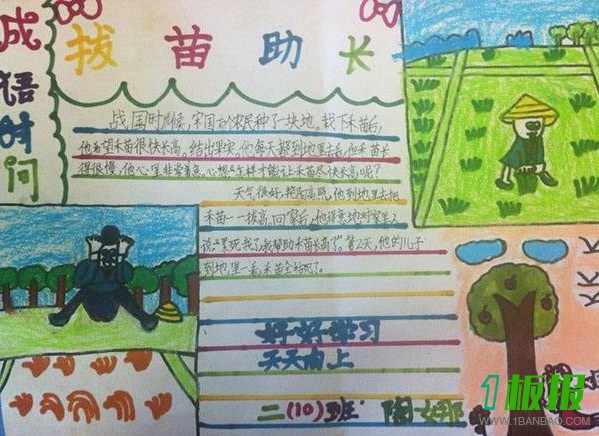 成语时间
拔苗助长
战国时候,宋国有个农民种了一块地。栽下禾苗后,
他希望禾苗很快长高。结出果实,他每天都到地里去看,但禾苗长
得很慢,他心里非常着急,心想“怎样才能让禾苗尽快长高呢?
天气很好,艳阳高照,他到地里去把
禾苗一一拔高,回家后,他得意地对家里人
说“累死我了,我帮助禾苗长高了”第2天,他的儿子
到地里一看,禾苗全枯死了。
好好学习
天天向上
二(10)班 陶娜
1板报
WWW.1BANBAO.COM